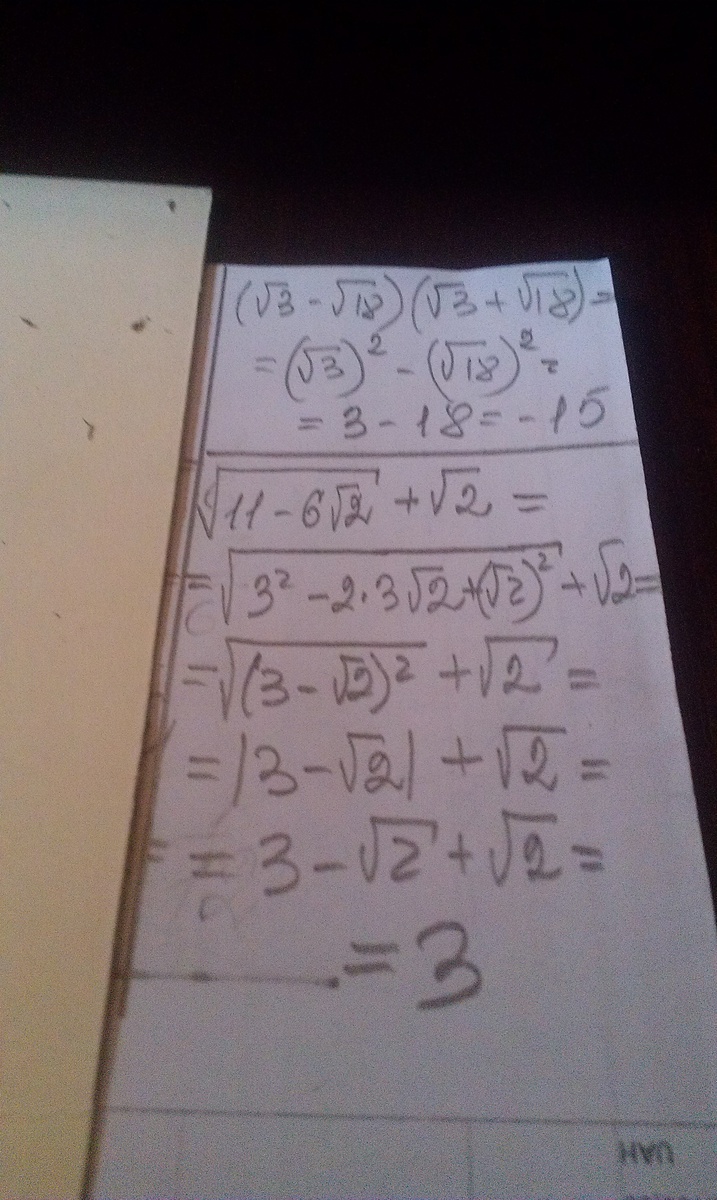 (√3 - √18)(√3 + √18) =
= (√3)² - (√18)² =
= 3 - 18 = -15
√(11 - 6√2) + √2 =
= √(3² - 2·3√2 + (√2)²) + √2 =
= √((3 - √2)²) + √2 =
= |3 - √2| + √2 =
= = 3 - √2 + √2 =
= 3
UAH